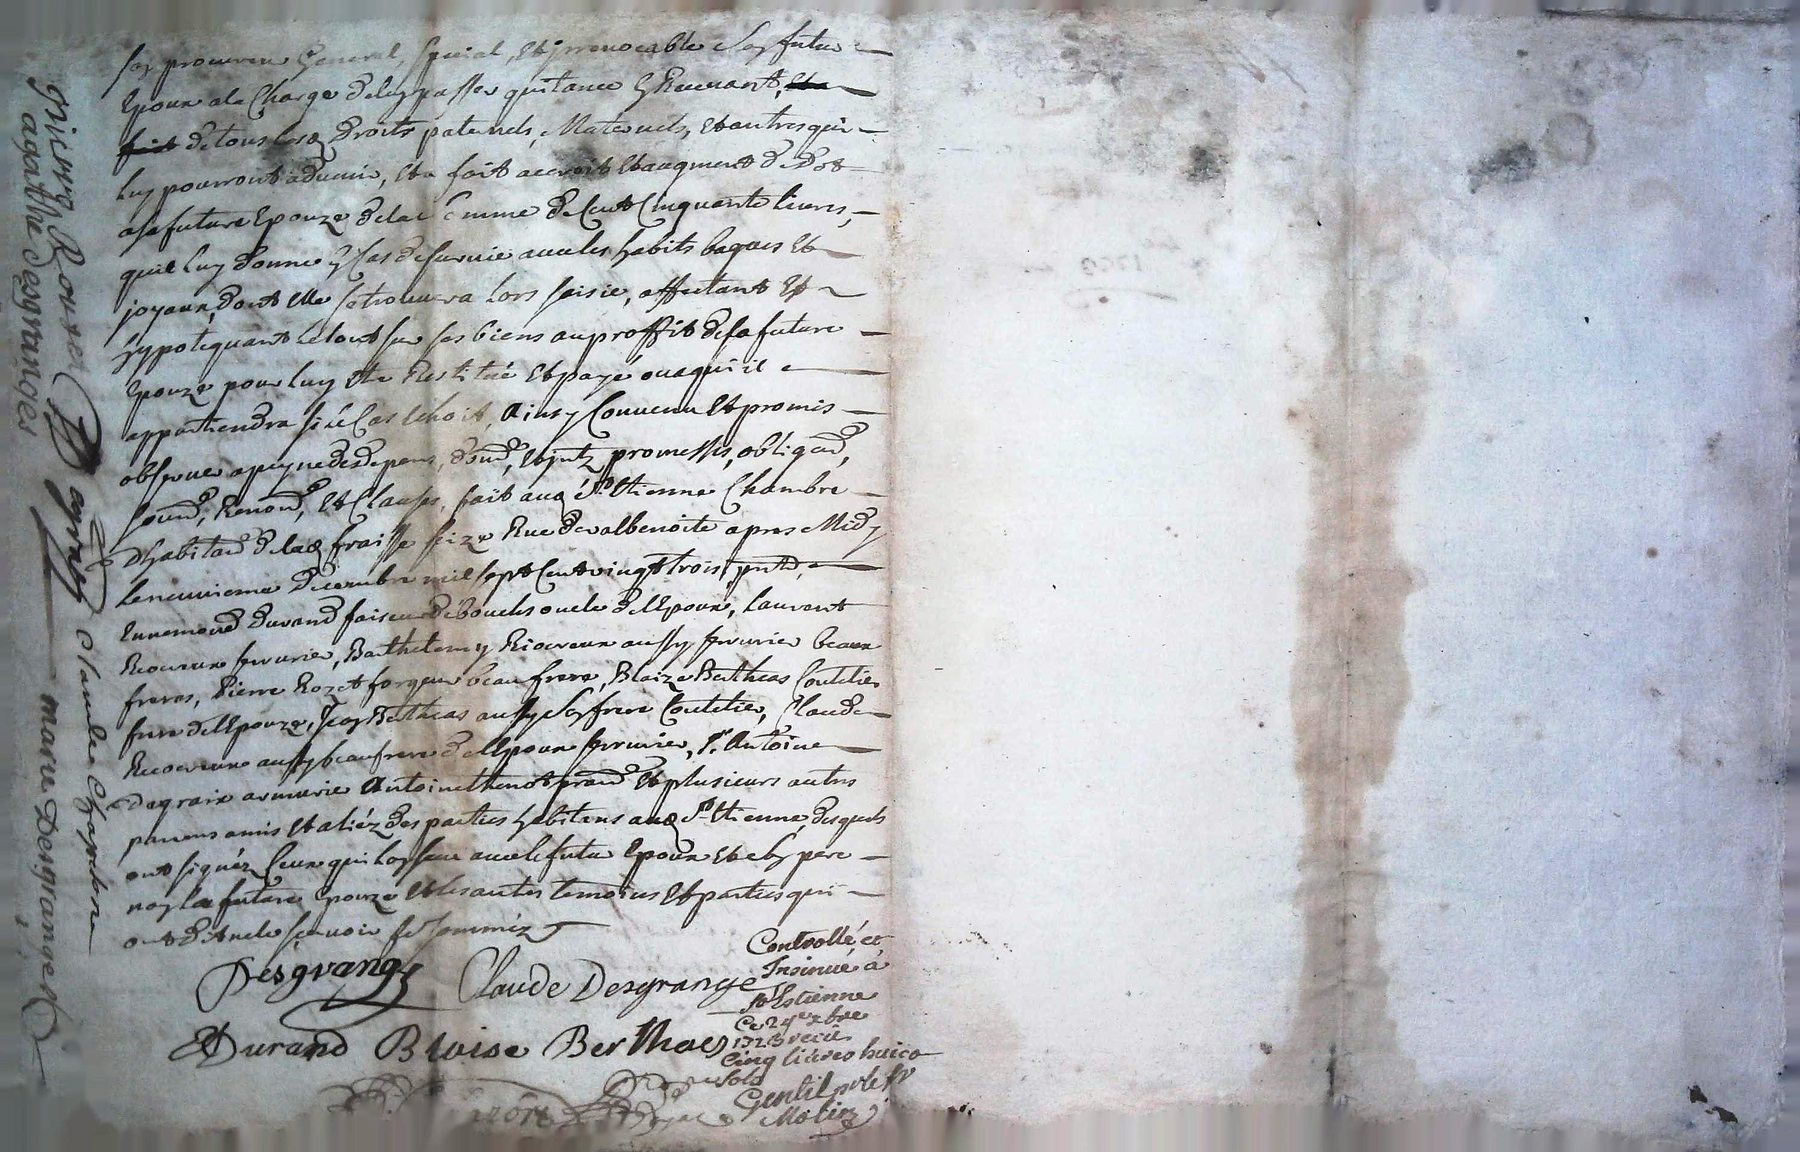 son procureur General, special, et irrevocable son futur
Epoux a la Charge de luy passer quitance En Recevant, et a
fait de tous les droits paternels, Maternels, et autres qui
luy pourront advenir, et a fait accroit et augment de dot
a sa future Epouze de la somme de Cent Cinquante livres,
quil luy donne En Cas de survie avec les habits bagues et
joyaux, dont elle se trouvera lors saisie, affectant et
hypotequant le tout sur ses biens au proffit de sa future
Epouze pour luy etre Restitué et payé ou a qui il
appartiendra si le Cas Echoit, Ainsy Convenu et promis
observer a peyne des depens, promesses, obligaõns,
soumõns, Renonõns, et Clauses, fait audit St Etienne Chambre
d'habitaõn dela fraisse size Rue de valbenoite apres Midy
le neuvieme decembre mil sept Cent vingt trois, pnts,
Ennemond durand faiseur de boucles oncle de l'Epoux, laurent
Riocreux serrurier, Barthelemy Riocreux aussy serrurier beaux
freres, Pierre Rozet forgeur beau frere, Blaize Bertheas Coutelier
frere de l'Epouze, Jean Bertheas aussy son frere Coutelier, Claude
Riocreux aussy beaufrere de l'Epoux serrurier, Sr Antoine
dagraix armurier Antoine thenot et plusieurs autres
parens amis et aliéz des parties habitans audit St Etienne, desquels
ont signéz Ceux qui l'ont sceu avec le futur Epoux et son pere
non la future Epouze et les autres temoins et parties qui
ont dit ne le sçavoir de ce somméz
Desgranges Claude Desgrange
EDurand Blaise Bertheas
Controllé, et
Insinué à
St Estienne
Ce 24e xbre
1723 receu
Cinq livres huict
sols
Gentil
agathe desgranges
marie Desgranges
claude Chapelone